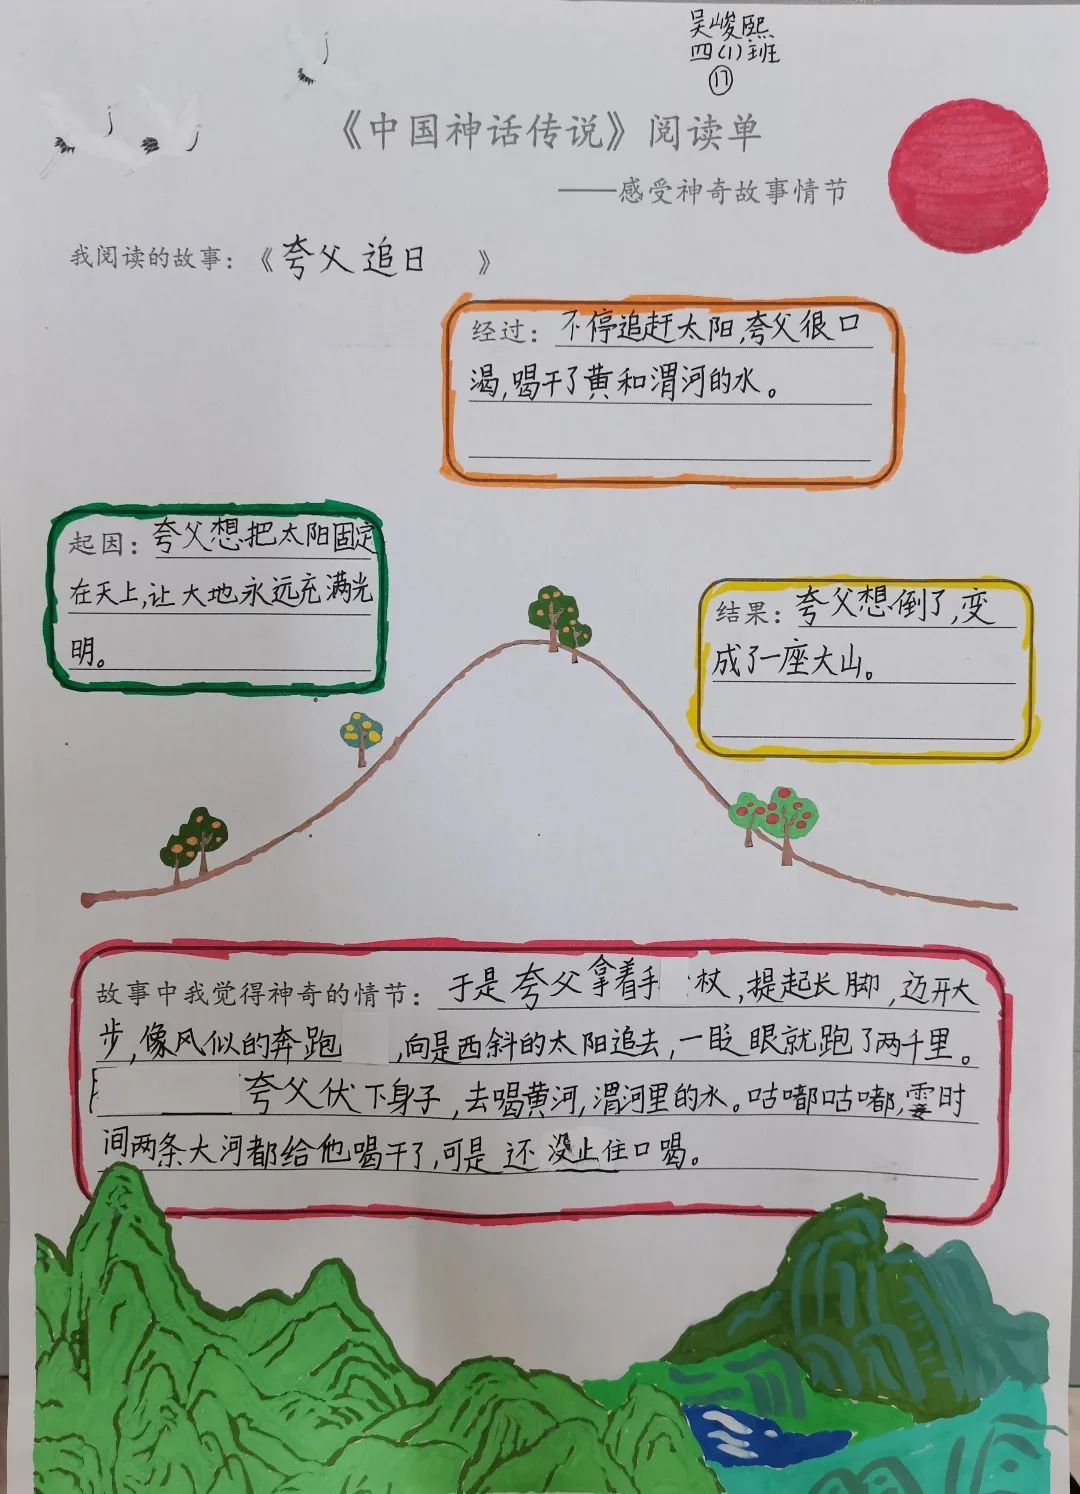 吴峻熙
四(1)班
⑰
《中国神话传说》阅读单
——感受神奇故事情节
我阅读的故事：《夸父追日》
经过：不停追赶太阳,夸父很口
渴,喝干了黄和渭河的水。
起因：夸父想把太阳固定
在天上,让大地永远充满光
明。
结果：夸父想倒了,变
成了一座大山。
故事中我觉得神奇的情节：于是夸父拿着手杖,提起长脚,迈开大
步,像风似的奔跑,向是西斜的太阳追去,一眨眼就跑了两千里。
夸父伏下身子,去喝黄河,渭河里的水。咕嘟咕嘟,霎时
间两条大河都给他喝干了,可是还没止住口喝。